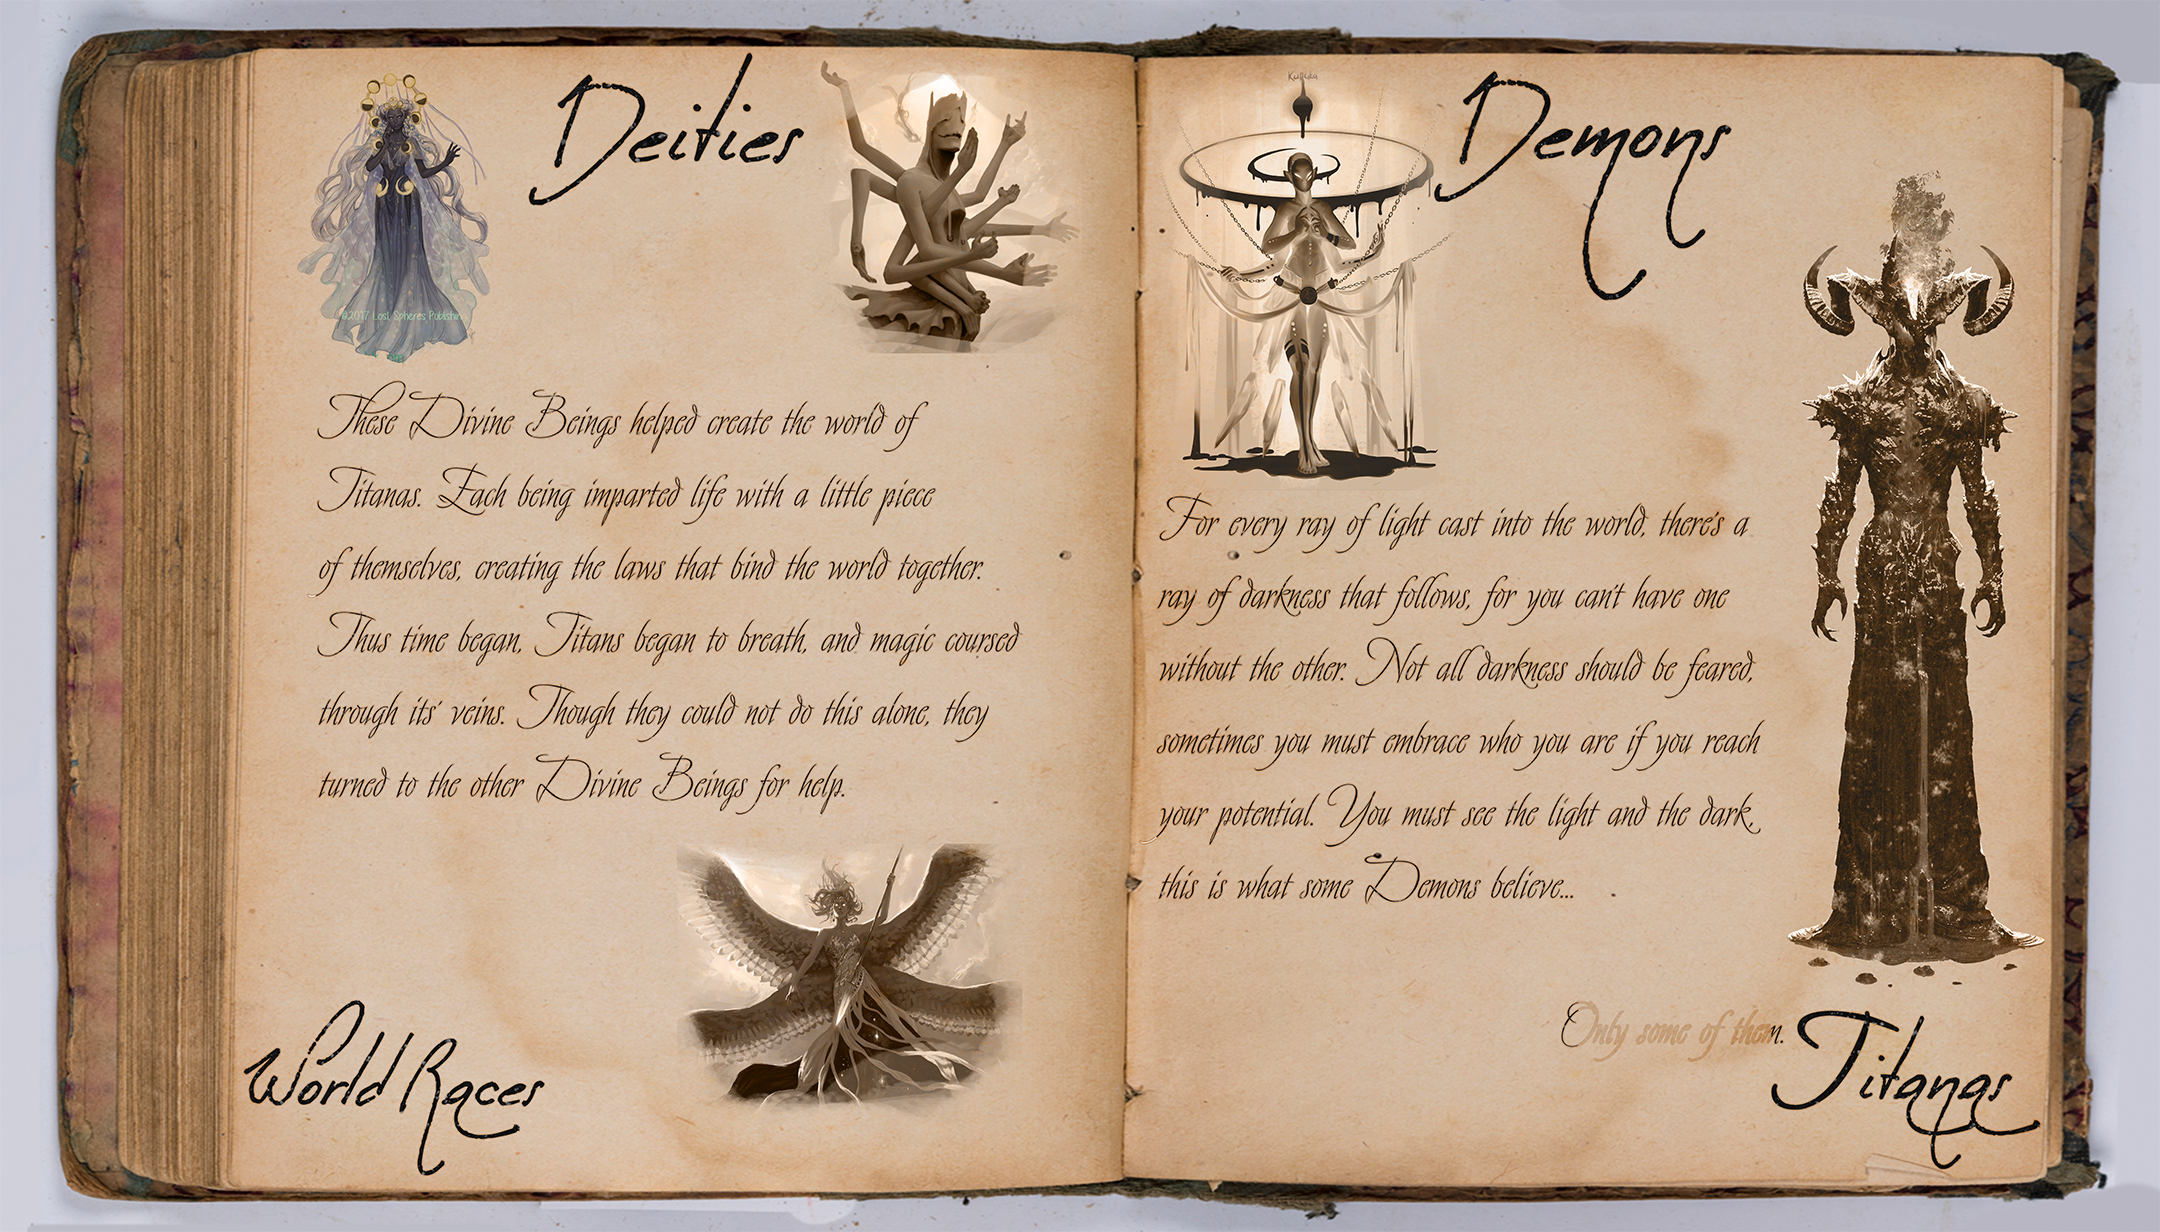 Deities
©2017 Lost Spheres Publishin
These Divine Beings helped create the world of
Titanas. Each being imparted life with a little piece
of themselves, creating the laws that bind the world together.
Thus time began, Titans began to breath, and magic coursed
through its' veins. Though they could not do this alone, they
turned to the other Divine Beings for help.
World Races
Demons
For every ray of light cast into the world, there's a
ray of darkness that follows, for you can't have one
without the other. Not all darkness should be feared,
sometimes you must embrace who you are if you reach
your potential. You must see the light and the dark,
this is what some Demons believe...
Only some of them.
Titanas